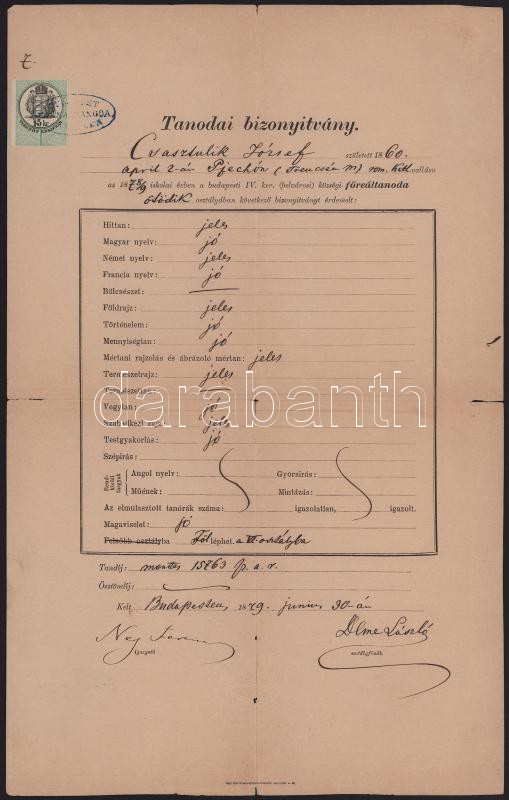 7.
15 kr
Tanodai bizonyitvány.
Csasztulik József született 1860.
april 2-án Pjechón (Trencsén m) rom. kath. vallásu
az 1878/9 iskolai évben a budapesti IV. ker. (belvárosi) községi főreáltanoda
ötödik osztályában következő bizonyitványt érdemelt:
Hittan: jeles
Magyar nyelv: jó
Német nyelv: jeles
Francia nyelv: jó
Bölcsészet:
Földrajz: jeles
Történelem: jó
Mennyiségtan: jó
Mértani rajzolás és ábrázoló mértan: jeles
Természetrajz: jeles
Természettan:
Vegytan: jó
Szabadkézi rajz: jeles
Testgyakorlás: jó
Szépirás:
Rendkivüli tárgyak
Angol nyelv: Gyorsirás:
Műének: Mintázás:
Az elmulasztott tanórák száma: igazolatlan, igazolt.
Magaviselet: jó
Felsőbb osztályba Föl léphet. a VI osztályba
Tandij: mentes 15763 p. a. r.
Ösztöndij:
Kelt Budapesten, 1879. junius 30-án
Ney Ferenc
igazgató
Dlme László
osztályfőnök.
darabanth